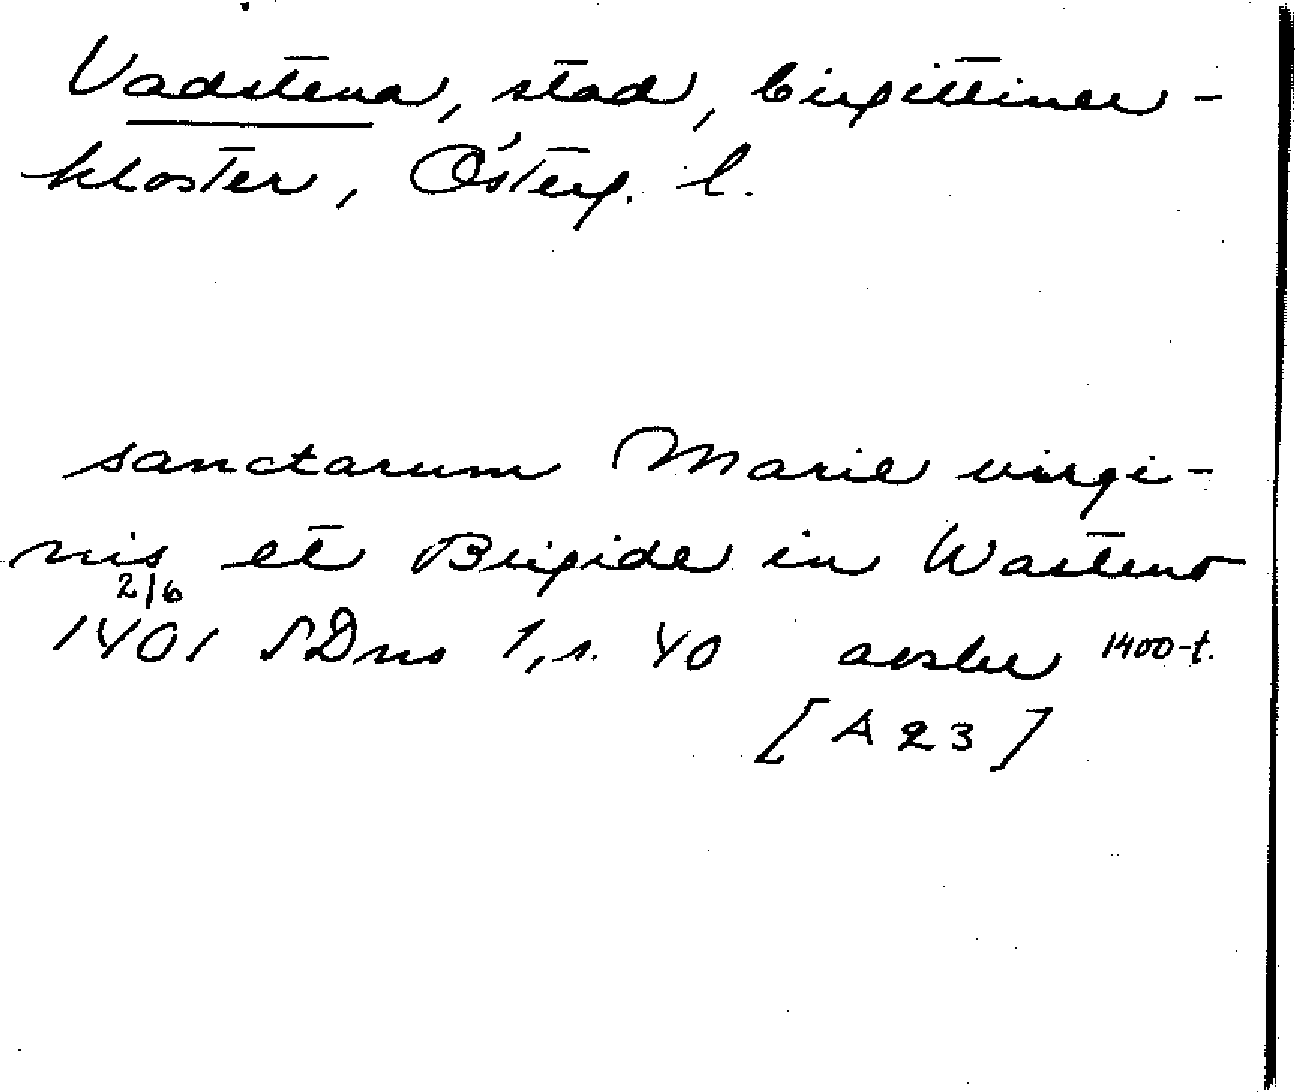 Vadstena, stad, birgittiner-
kloster, Österg. l.
sanctarum Marie virgi-
nis et Brigide in Wasteno
2/6
1401 SDns 1, s. 40 avskr 1400-t.
[A 23]